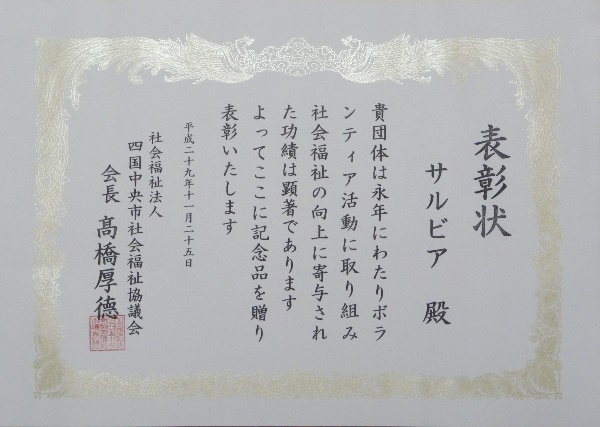 表彰状
サルビア 殿
貴団体は永年にわたりボラ
ンティア活動に取り組み
社会福祉の向上に寄与され
た功績は顕著であります
よってここに記念品を贈り
表彰いたします
平成二十九年十一月二十五日
社会福祉法人
四国中央市社会福祉協議会
会長 髙橋厚德